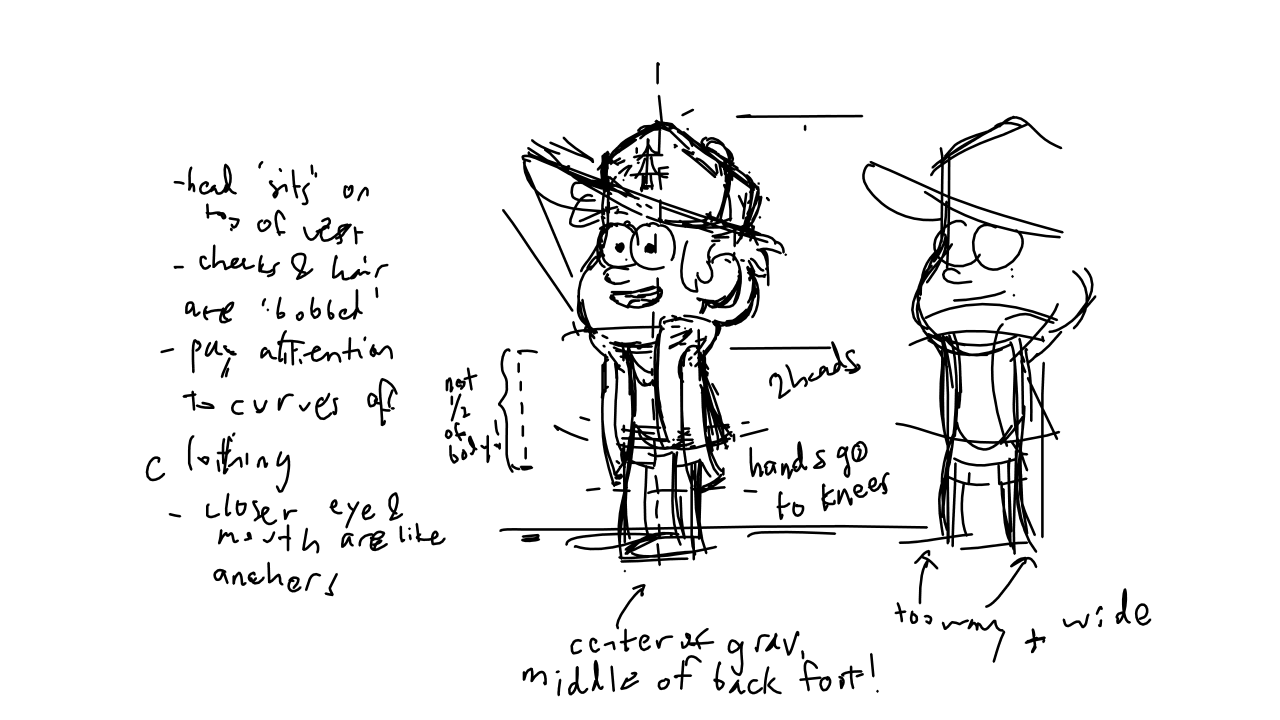 -head "sits" on
top of vest
- cheeks & hair
are "bobbed"
- pay attention
to curves of
clothing
- closer eye &
mouth are like
anchers
not
1/2
of
body!
2 heads
hands go
to knees
center of grav,
middle of back foot!
too way + wide